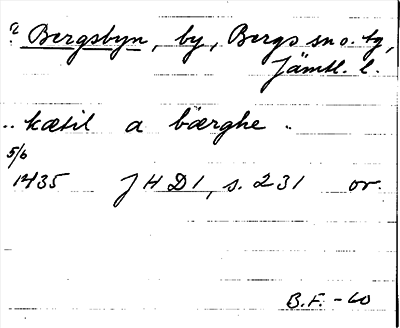 ? Bergsbyn, by, Bergs sn o. tg,
Jämtl. l.
.. kætil a bærghe ..
5/6
1435 JHD1, s. 231 or.
B.F. -60